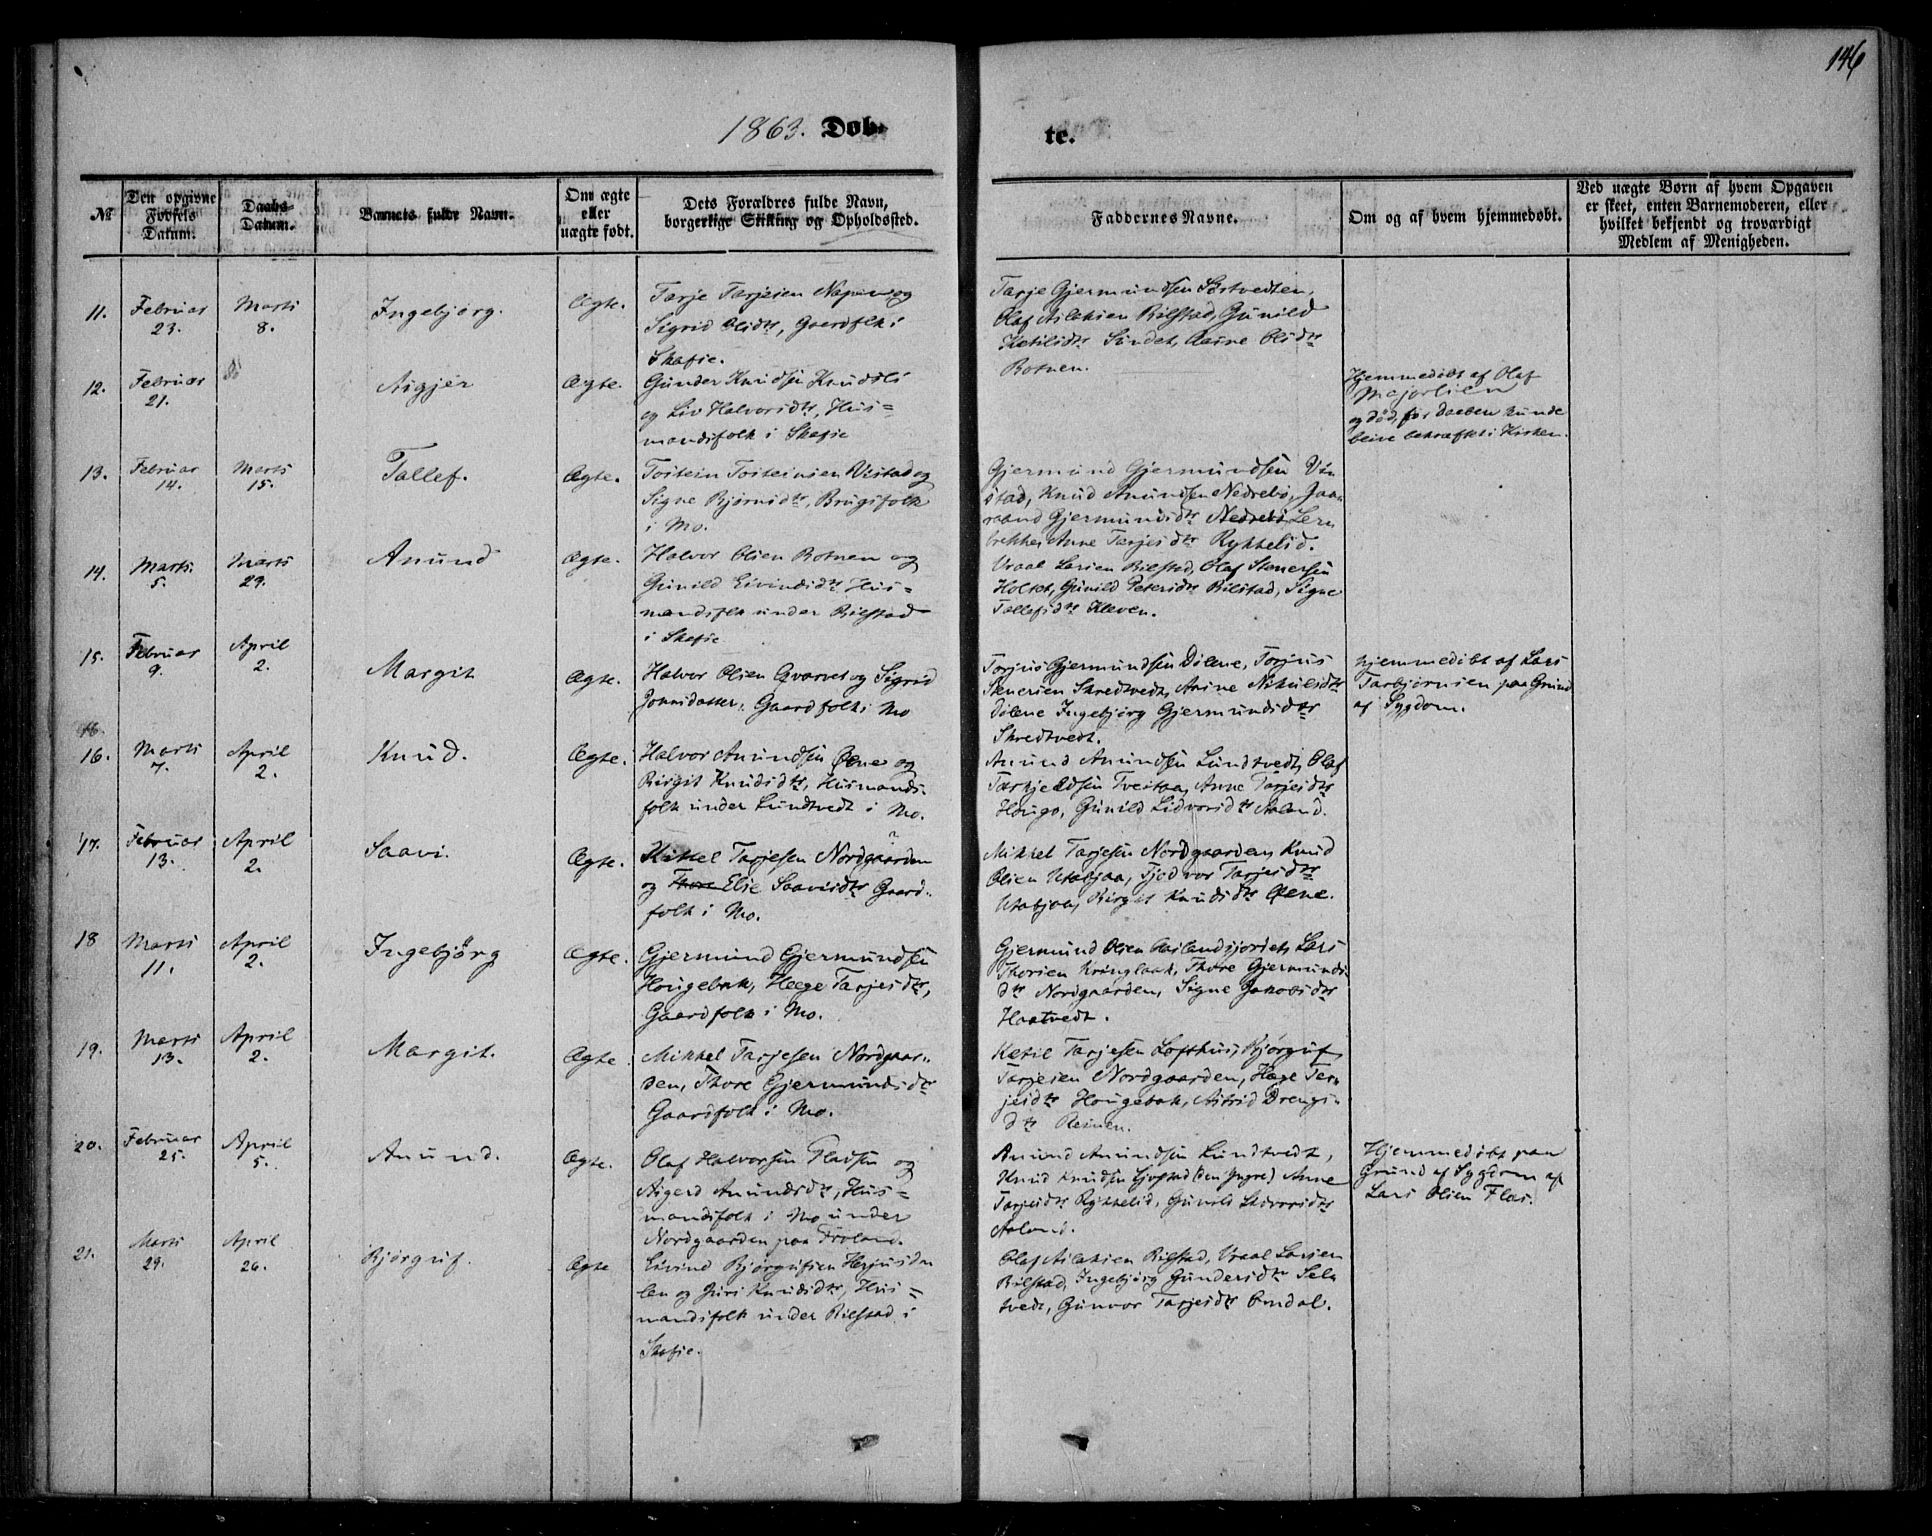 146
1863. Døb-
te.
№
Den opgivne Fødsels Datum.
Daabs-Datum.
Barnets fulde Navn.
Om ægte eller uægte født.
Dets Forældres fulde Navn, borgerlige Stilling og Opholdssted.
Faddernes Navne.
Om og af hvem hjemmedøbt.
Ved uægte Børn af hvem Opgaven er skeet, enten Barnemoderen, eller hvilket bekjendt og troværdigt Medlem af Menigheden.
11.
Februar
23.
Marts
8.
Ingebjørg.
Ægte.
Tarje Tarjesen Napen og
Sigrid Olsdtr, Gaardfolk i
Skafse.
Tarje Gjermundsen Sørtvedten,
Olaf Aslaksen Rilstad, Gunild
Ketilsdtr Sundet, Aasne Olsdtr
Botnen.
12.
Februar
21.
Aigjer
Ægte.
Gunder Knudsen Knudsli
og Liv Halvorsdtr, Hus=
mandsfolk i Skafse
Hjemmedøbt af Olaf
Mejorlien
og død, før Daaben kunde
blive bekræftet i Kirken.
13.
Februar
14.
Marts
15.
Tallef.
Ægte.
Tostein Tosteinsen Vistad og
Signe Bjørnsdtr, Brugsfolk
i Mo.
Gjermund Gjermundsen Vin
stad, Knud Anundsen Nedrebø, Jaa
raand Gjermundsdtr Nedrebø Lern
brekke, Anne Tarjesdtr Rykkelid.
14.
Marts
5.
Marts
29.
Anund
Ægte.
Halvor Olsen Botnen og
Gunild Eivindsdtr, Hus=
mandsfolk under Rilstad
i Skafse
Vraal Larsen Rilstad, Olaf Stenersen
Holtet, Gunild Petersdtr Rilstad, Signe
Tallefsdtr Kleven.
15.
Februar
9.
April
2.
Margit
Ægte.
Halvor Olsen Qvarnes og Sigrid
Johnsdatter, Gaardfolk i Mo
Torjus Gjermundsen Dølene, Torjus
Stenersen Skredtvedt, Anne Nikulsdtr
Dølene Ingebjørg Gjermundsdtr
Skredtvedt.
Hjemmedøbt af Lars
Tarbjørnsen paa Grund
af Sygdom.
16.
16.
Marts
7.
April
2.
Knud.
Ægte.
Halvor Anundsen Øene og
Birgit Knudsdtr, Husmands=
folk under Lundtvedt i Mo.
Anund Anundsen Lundtvedt, Olaf
Tarkjeldsen Tveitaa, Anne Tarjesdtr
Hougo, Gunild Lidvorsdtr Aaland.
17.
Februar
13.
April
2.
Saavi.
Ægte.
Kittel Tarjesen Nordgaarden
og Thore Elsie Saavisdtr Gaard=
folk i Mo.
Mikkel Tarjesen Nordgaarden, Knud
Olsen Utabjaa, Tjodvor Tarjesdtr
Utabjaa, Birgit Knudsdtr Øene.
18
Marts
11.
April
2.
Ingebjørg
Ægte.
Gjermund Gjermundsen
Hougebak, Hege Tarjesdtr,
Gaardfolk i Mo.
Gjermund Olsen Aaslandsjordet, Lars
Thorsen Kringlaak, Thore Gjermunds=
dtr Nordgaarden, Signe Jakobsdtr
Haatvedt.
19.
Marts
13.
April
2.
Margit.
Ægte.
Mikkel Tarjesen Nordgaar=
den, Thore Gjermundsdtr
Gaardfolk i Mo.
Ketil Tarjesen Lofthus, Bjørguf
Tarjesen Nordgaarden, Hæge Tar=
jesdtr Hougebak, Astrid Drengs=
dtr Reinen.
20.
Februar
25.
April
5.
Anund.
Ægte.
Olaf Halvorsen Fladsen og
Aigerd Anundsdtr, Hus=
mandsfolk i Mo under
Nordgaarden paa Frøland.
Anund Anundsen Lundtvedt,
Knud Knudsen Ljosstad (den Yngre) Anne
Tarjesdtr Rykkelid, Gunild Lidvorsdtr
Aaland.
Hjemmedøbt paa
Grund af Sygdom af
Lars Olsen Flas.
21.
Marts
29.
April
26.
Bjørguf.
Ægte
Eivind Bjørgufsen Herjusda
len og Guri Knudsdtr, Hus=
mandsfolk under Rilstad i
Skafse.
Olaf Aslaksen Rilstad, Vraal Larsen
Rilstad, Ingebjørg Gundersdtr Sel=
tvedt, Gunvor Tarjesdtr Omdal.